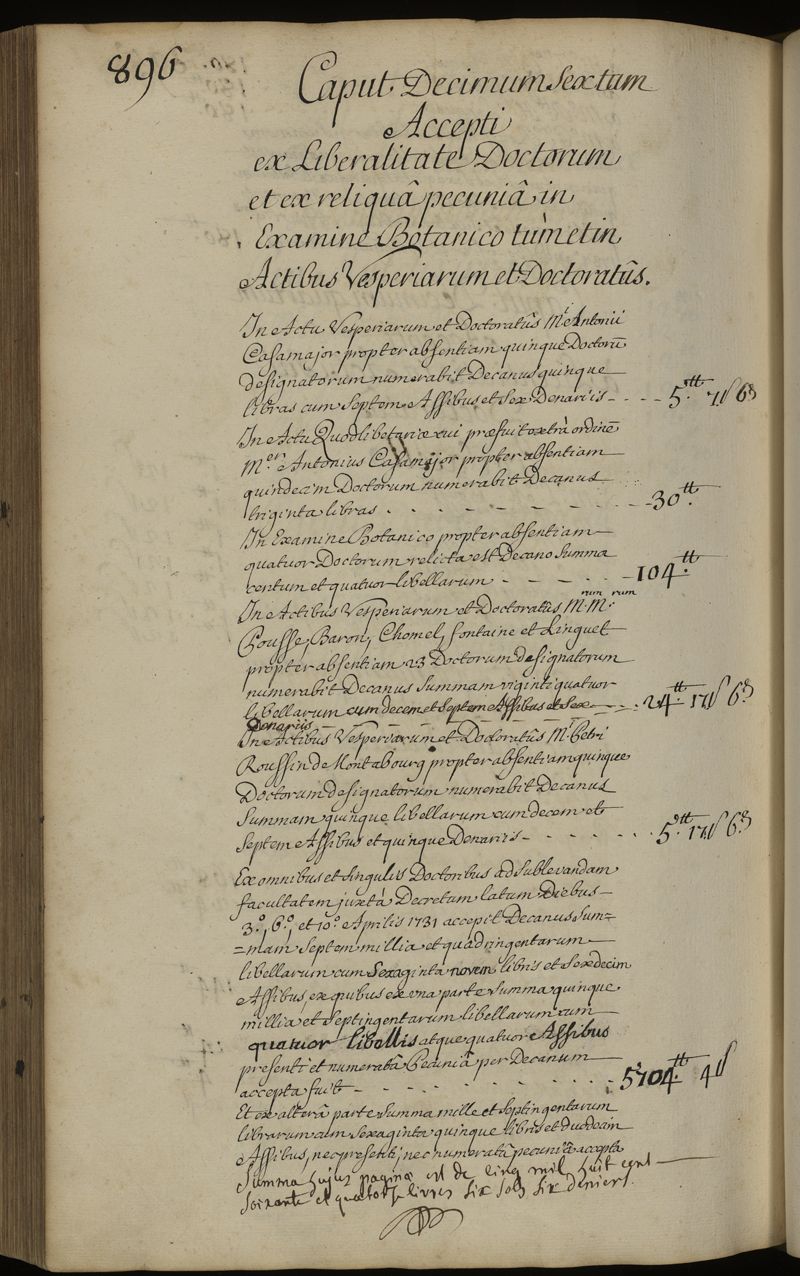 896
Caput Decimum Sextum
Accepti
ex Liberalitate Doctorum
et ex reliquâ pecuniâ in
Examine Botanico tùm et in
Actibus Vesperiarum et Doctoratûs.
In Actu Vesperiarum et Doctoratûs Mri Antonii
Casamajor propter absentiam quinque Doctorū
designatorum numerabit Decanus quinque
libras cum Septem Assibus et Sex Denariis - - - - 5.tt 7s 6d
In Actu Quodlibetariæ cui præfuit extrà ordinē
M.er Antonius Casamajor propter absentiam
quindecim Doctorum numerabit Decanus
triginta libras - - - - - - - - 30tt.
In Examine Botanico propter absentiam
quatuor Doctorum relicta est Decano Summa
centum et quatuor libellarum - - - - - 104.tt
In Actibus Vesperiarum et Doctoratûs M.rum M.rum
Pousse, Baron, Chomel, fontaine et Linguet
propter absentiam 23 Doctorum designatorum
numerabit Decanus Summam viginti quatuor
libellarum cum decem et Septem Assibus et Sex - - . 24tt 17s 6d
Denariis - - - - - -
In Actibus Vesperiarum et Doctoratûs Mri Petri
Roussin de Montabourg propter absentiam quinque
Doctorum designatorum numerabit Decanus
Summam quinque libellarum cum decem et
Septem Assibus et quinque Denariis - - - - - - . 5.tt 17s 6d
Ex omnibus et Singulis Doctoribus ad Sublevandam
facultatem juxtà Decretum latum Diebus
3.o, 6.o, et 10.o Aprilis 1731 accepit Decanus Sum=
=mam Septem millia et quadringentarum
libellarum cum Sexaginta novem libris et Sexdecim
Assibus, ex quibus ex una parte Summa quinque
millia et Septingentarum libellarum cum
quatuor libellis atque quatuor Assibus
presenti et numeratâ Pecuniâ per Decanum
accepta fuit - - - - - - - - - - 5704tt 4s
Et ex alterâ parte Summa mille et Septingentarum
librarum cum Sexaginta quinque libris et duodecim
Assibus, nec presenti, nec numeratâ pecuniâ accepta
Summa hujus paginæ est de cinq mil huit cent
soixante et quatorze livres six sols six deniers.